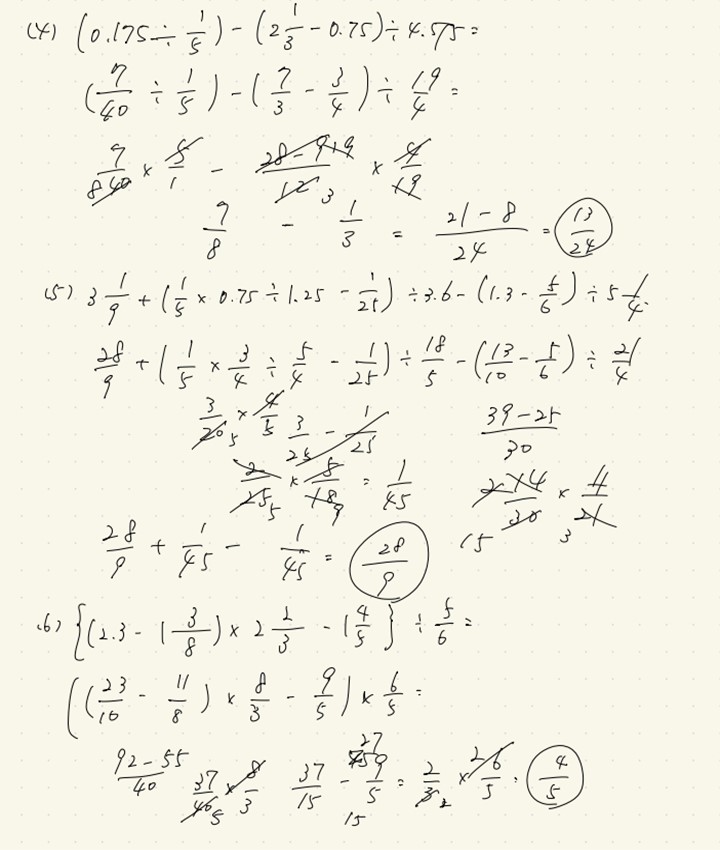 (4) (0.175 ÷ 1/5) - (2 1/3 - 0.75) ÷ 4.75 =
(7/40 ÷ 1/5) - (7/3 - 3/4) ÷ 19/4 =
7/8 40 × 5/1 - 28-9 19/12 3 × 4/19
7/8 - 1/3 = 21-8/24 = 13/24
(5) 3 1/9 + (1/5 × 0.75 ÷ 1.25 - 1/25) ÷ 3.6 - (1.3 - 5/6) ÷ 5 1/4
28/9 + (1/5 × 3/4 ÷ 5/4 - 1/25) ÷ 18/5 - (13/10 - 5/6) ÷ 21/4
3/20 5 × 4/5 3/25 - 1/25 39-25/30
2/25 5 × 5/18 9 = 1/45 2 14/30 15 × 4/21 3
28/9 + 1/45 - 1/45 = 28/9
(6) {(2.3 - 1 3/8) × 2 2/3 - 1 4/5} ÷ 5/6 =
((23/10 - 11/8) × 8/3 - 9/5) × 6/5 =
92-55/40 37/40 5 × 8/3 37/15 - 27 9/5 15 = 2/3 × 2 6/5 = 4/5